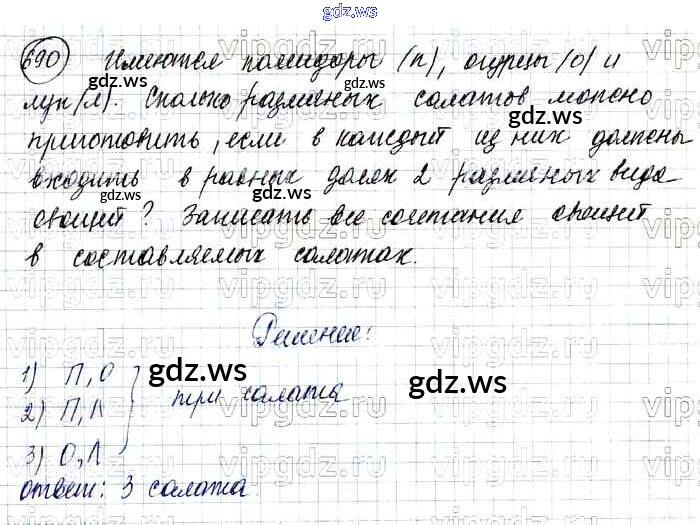 gdz.ws
690 Имеются помидоры (п), огурцы (о) и
лук (л). Сколько различных салатов можно
приготовить, если в каждый из них должны
входить в равных долях 2 различных вида
овощей? Записать все сочетания овощей
в составляемых салатах.
Решение:
1) П, О
2) П, Л
3) О, Л
три салата
ответ: 3 салата
gdz.ws
gdz.ws
gdz.ws
gdz.ws
gdz.ws
gdz.ws
vipgdz.ru